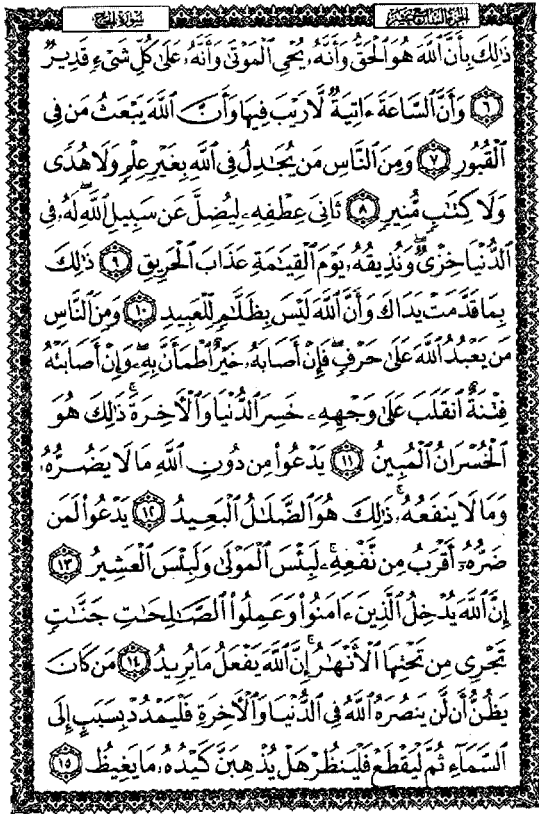 سورة الحج
الجزء السابع عشر
ذَٰلِكَ بِأَنَّ ٱللَّهَ هُوَ ٱلْحَقُّ وَأَنَّهُۥ يُحْىِ ٱلْمَوْتَىٰ وَأَنَّهُۥ عَلَىٰ كُلِّ شَىْءٍ قَدِيرٌ
٦ وَأَنَّ ٱلسَّاعَةَ ءَاتِيَةٌ لَّا رَيْبَ فِيهَا وَأَنَّ ٱللَّهَ يَبْعَثُ مَن فِى
ٱلْقُبُورِ ٧ وَمِنَ ٱلنَّاسِ مَن يُجَٰدِلُ فِى ٱللَّهِ بِغَيْرِ عِلْمٍ وَلَا هُدًى
وَلَا كِتَٰبٍ مُّنِيرٍ ٨ ثَانِىَ عِطْفِهِۦ لِيُضِلَّ عَن سَبِيلِ ٱللَّهِ ۖ لَهُۥ فِى
ٱلدُّنْيَا خِزْىٌ ۖ وَنُذِيقُهُۥ يَوْمَ ٱلْقِيَٰمَةِ عَذَابَ ٱلْحَرِيقِ ٩ ذَٰلِكَ
بِمَا قَدَّمَتْ يَدَاكَ وَأَنَّ ٱللَّهَ لَيْسَ بِظَلَّٰمٍ لِّلْعَبِيدِ ١٠ وَمِنَ ٱلنَّاسِ
مَن يَعْبُدُ ٱللَّهَ عَلَىٰ حَرْفٍ ۖ فَإِنْ أَصَابَهُۥ خَيْرٌ ٱطْمَأَنَّ بِهِۦ ۖ وَإِنْ أَصَابَتْهُ
فِتْنَةٌ ٱنقَلَبَ عَلَىٰ وَجْهِهِۦ خَسِرَ ٱلدُّنْيَا وَٱلْءَاخِرَةَ ۚ ذَٰلِكَ هُوَ
ٱلْخُسْرَانُ ٱلْمُبِينُ ١١ يَدْعُوا۟ مِن دُونِ ٱللَّهِ مَا لَا يَضُرُّهُۥ
وَمَا لَا يَنفَعُهُۥ ۚ ذَٰلِكَ هُوَ ٱلضَّلَٰلُ ٱلْبَعِيدُ ١٢ يَدْعُوا۟ لَمَن
ضَرُّهُۥٓ أَقْرَبُ مِن نَّفْعِهِۦ ۚ لَبِئْسَ ٱلْمَوْلَىٰ وَلَبِئْسَ ٱلْعَشِيرُ ١٣
إِنَّ ٱللَّهَ يُدْخِلُ ٱلَّذِينَ ءَامَنُوا۟ وَعَمِلُوا۟ ٱلصَّٰلِحَٰتِ جَنَّٰتٍ
تَجْرِى مِن تَحْتِهَا ٱلْأَنْهَٰرُ ۚ إِنَّ ٱللَّهَ يَفْعَلُ مَا يُرِيدُ ١٤ مَن كَانَ
يَظُنُّ أَن لَّن يَنصُرَهُ ٱللَّهُ فِى ٱلدُّنْيَا وَٱلْءَاخِرَةِ فَلْيَمْدُدْ بِسَبَبٍ إِلَى
ٱلسَّمَآءِ ثُمَّ لْيَقْطَعْ فَلْيَنظُرْ هَلْ يُذْهِبَنَّ كَيْدُهُۥ مَا يَغِيظُ ١٥